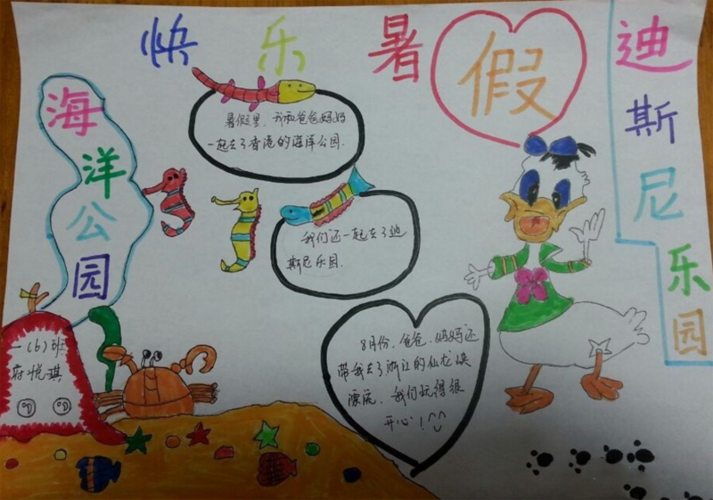 快乐暑假
迪斯尼乐园
海洋公园
暑假里,我和爸爸妈妈
一起去了香港的海洋公园.
我们还一起去了迪
斯尼乐园.
8月份,爸爸、妈妈还
带我去了浙江的仙龙峡
漂流,我们玩得很
开心!^^
一(6)班
府悦琪